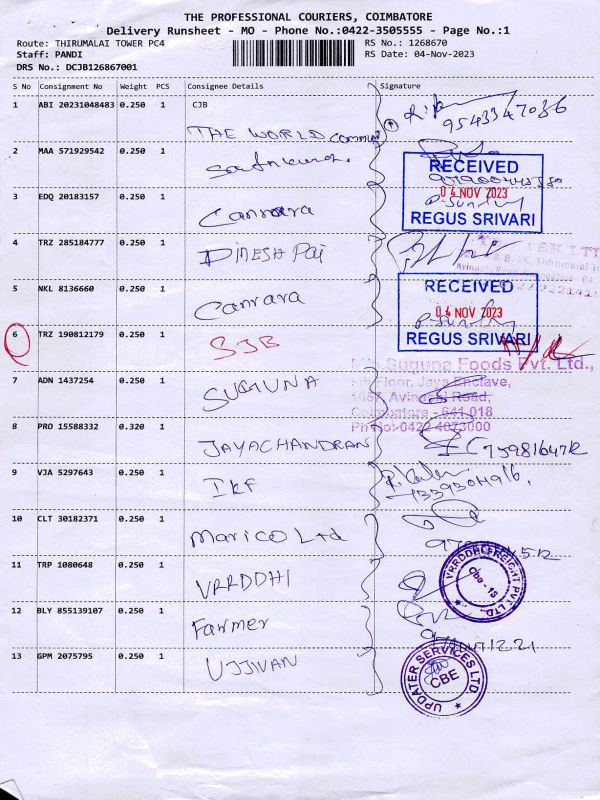 THE PROFESSIONAL COURIERS, COIMBATORE
Delivery Runsheet - MO - Phone No.:0422-3505555 - Page No.:1
Route: THIRUMALAI TOWER PC4
RS No.: 1268670
Staff: PANDI
RS Date: 04-Nov-2023
DRS No.: DCJB126867001
S No Consignment No Weight PCS Consignee Details Signature
1 ABI 20231048483 0.250 1 CJB
THE WORLD
9543347036
2 MAA 571929542 0.250 1
RECEIVED
04 NOV 2023
REGUS SRIVARI
3 EDQ 20183157 0.250 1 Canrara
4 TRZ 285184777 0.250 1 DINESH Pai
5 NKL 8136660 0.250 1 Canrara
RECEIVED
04 NOV 2023
REGUS SRIVARI
6 TRZ 190812179 0.250 1 SJB
M/s.Suguna Foods Pvt. Ltd.,
Floor, Jaya Enclave,
1057, Avinashi Road,
Coimbatore - 641 018
Ph No: 0422 4073000
7 ADN 1437254 0.250 1 SUGUNA
8 PRO 15588332 0.320 1 JAYACHANDRAN
9 VJA 5297643 0.250 1 IKF
10 CLT 30182371 0.250 1 Marico Ltd
11 TRP 1080648 0.250 1 VRRDDHI
VRRDDHI FREIGHT PVT. LTD.
Cbe - 18
12 BLY 855139107 0.250 1 Farmer
13 GPM 2075795 0.250 1 UJJWAN
UPDATER SERVICES LTD.
CBE